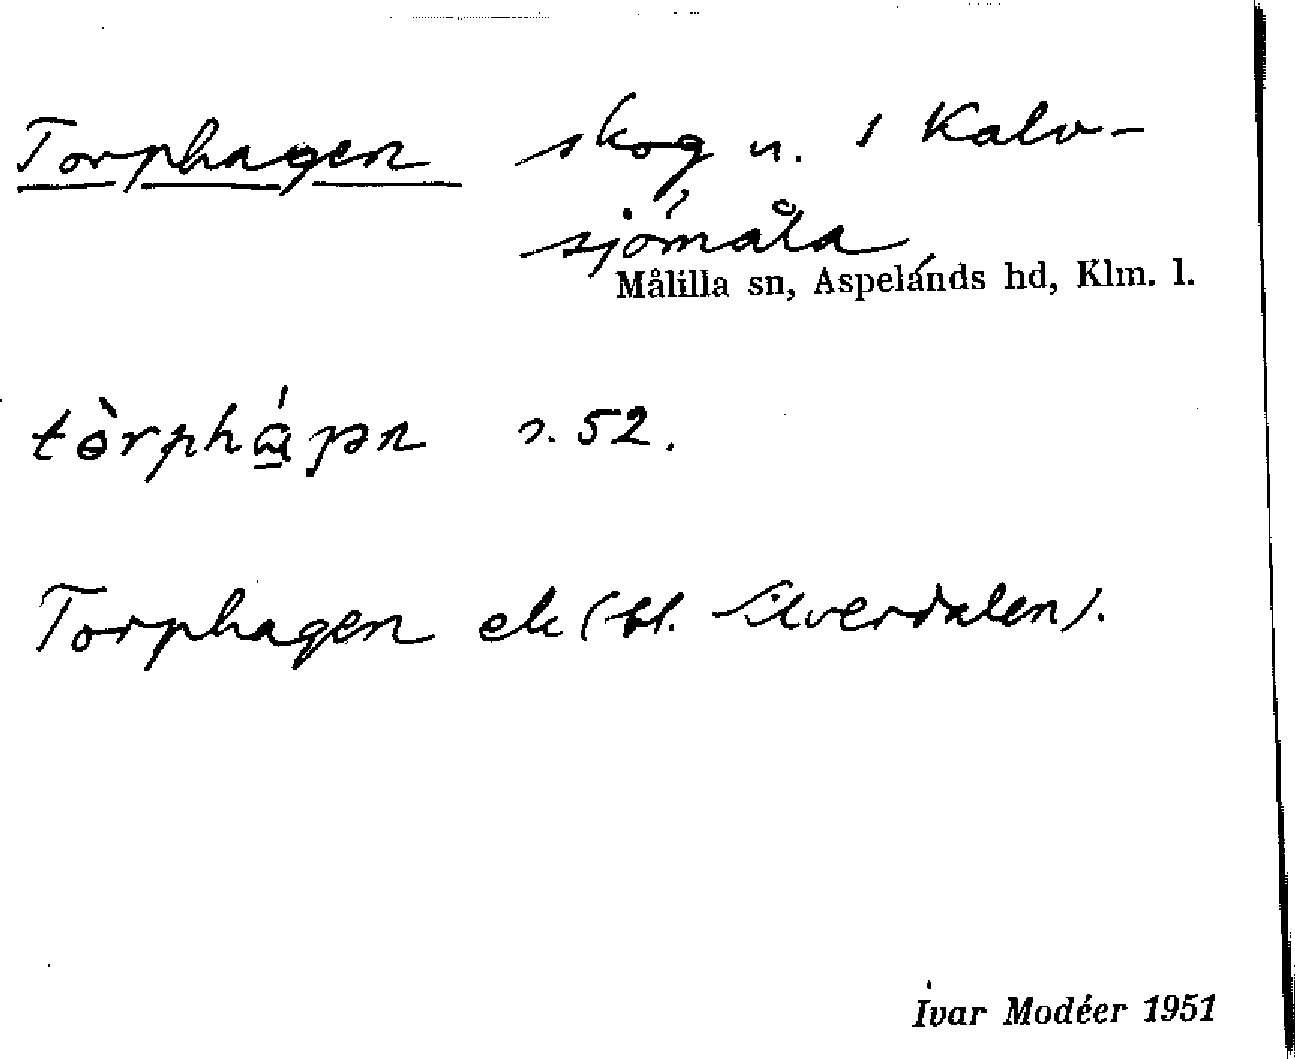 Torphagen skog n. 1 Kalv-
sjömåla
Målilla sn, Aspelands hd, Klm. l.
s. 52.
Torphagen ek (bl. Silverdalen).
Ivar Modéer 1951